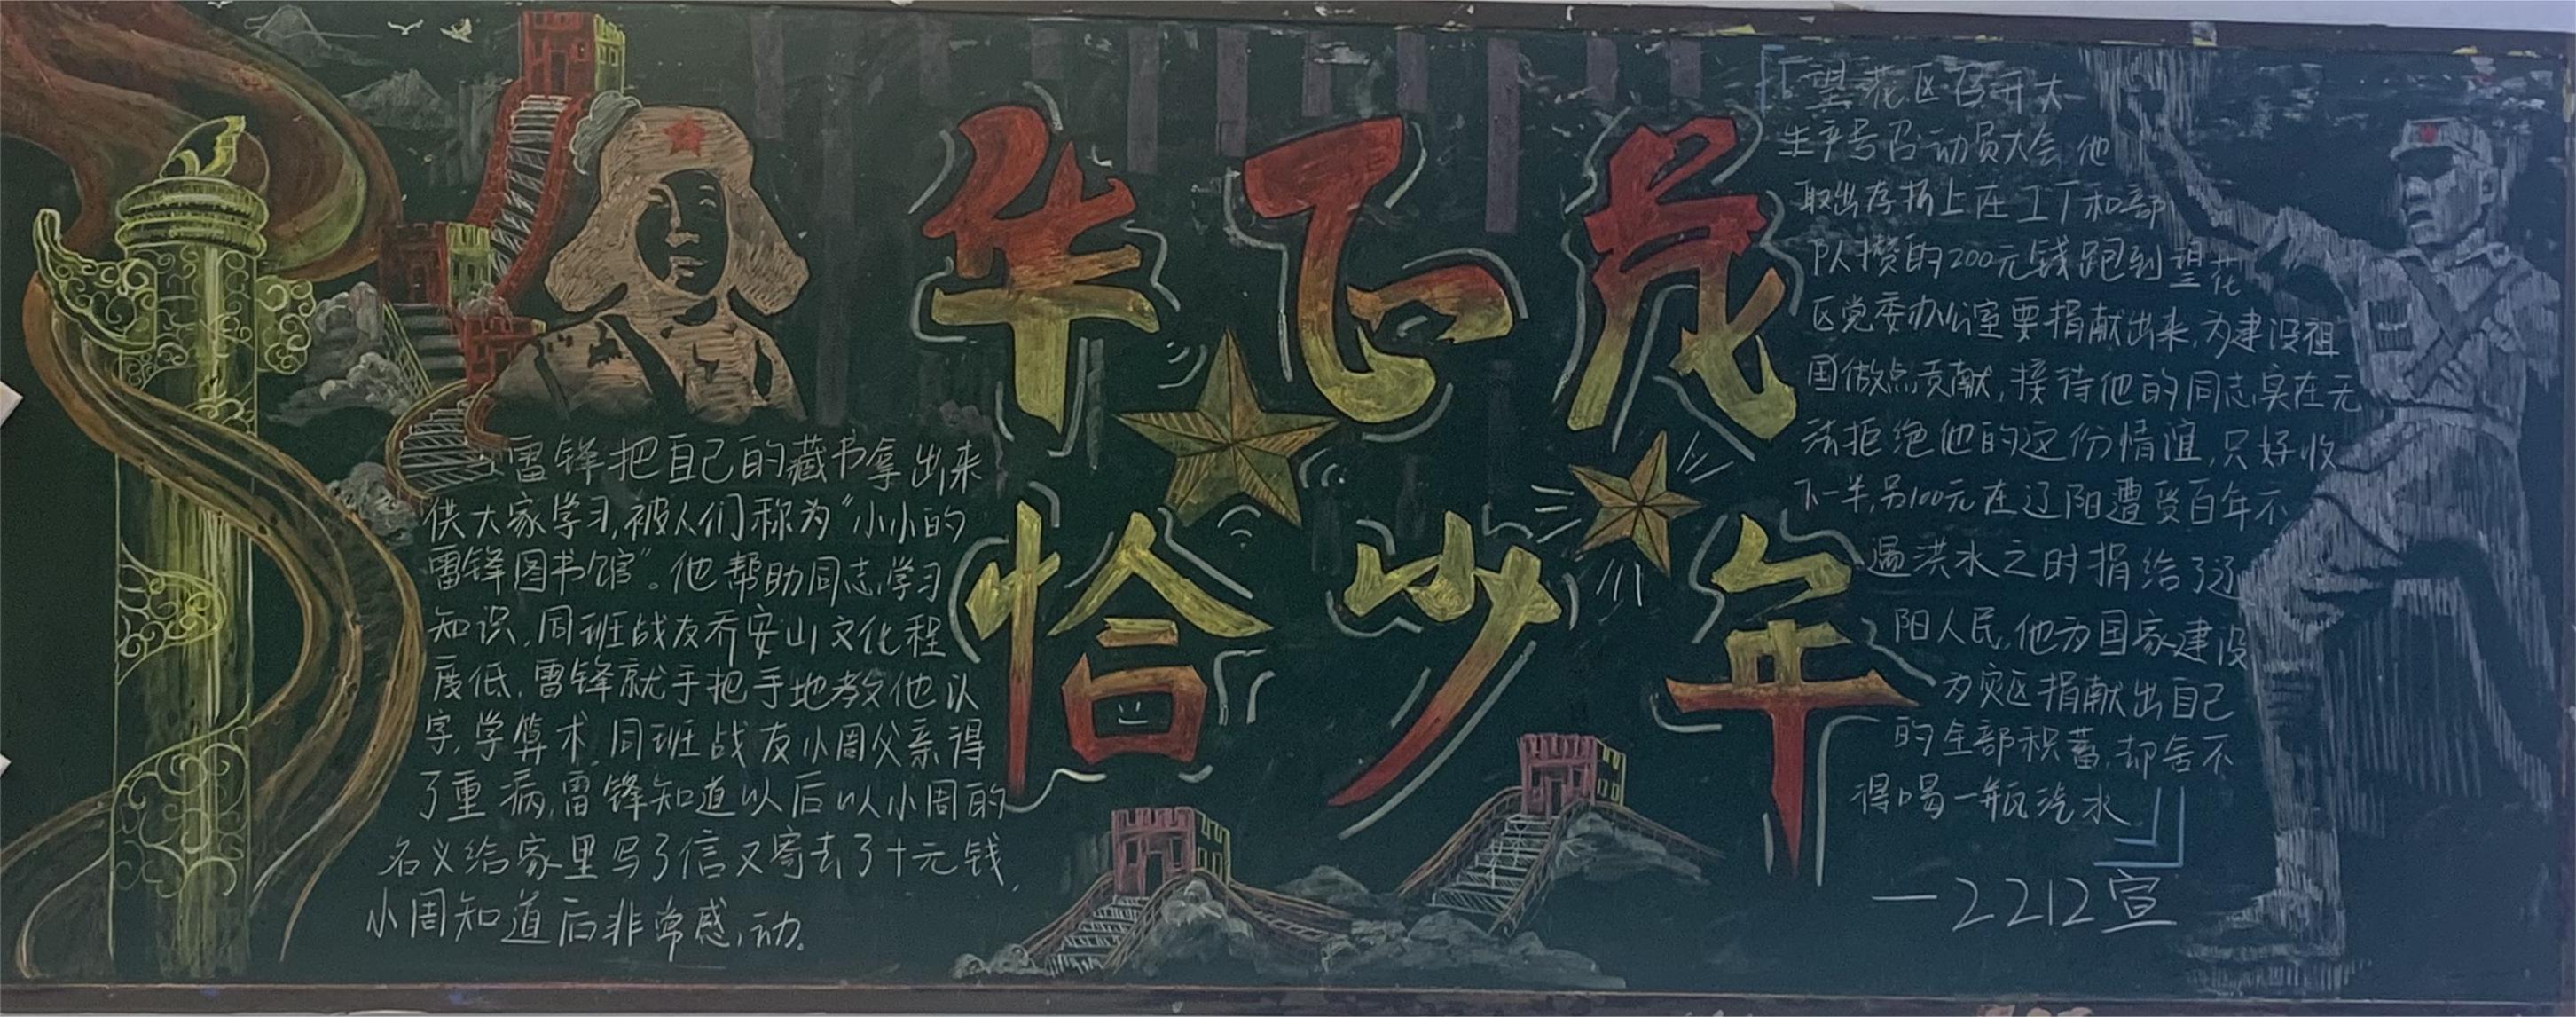 华飞茂
恰少年
雷锋把自己的藏书拿出来
供大家学习,被人们称为“小小的
雷锋图书馆”。他帮助同志学习
知识,同班战友乔安山文化程
度低,雷锋就手把手地教他认
字,学算术,同班战友小周父亲得
了重病,雷锋知道以后以小周的
名义给家里写了信又寄去了十元钱,
小周知道后非常感动。
望花区召开大
生产号召动员大会他
取出存折上在工厂和部
队攒的200元钱跑到望花
区党委办公室要捐献出来,为建设祖
国做点贡献,接待他的同志实在无
法拒绝他的这份情谊,只好收
下一半,另100元在辽阳遭受百年不
遇洪水之时捐给了辽
阳人民,他为国家建设
为灾区捐献出自己
的全部积蓄,却舍不
得喝一瓶汽水
—2212宣